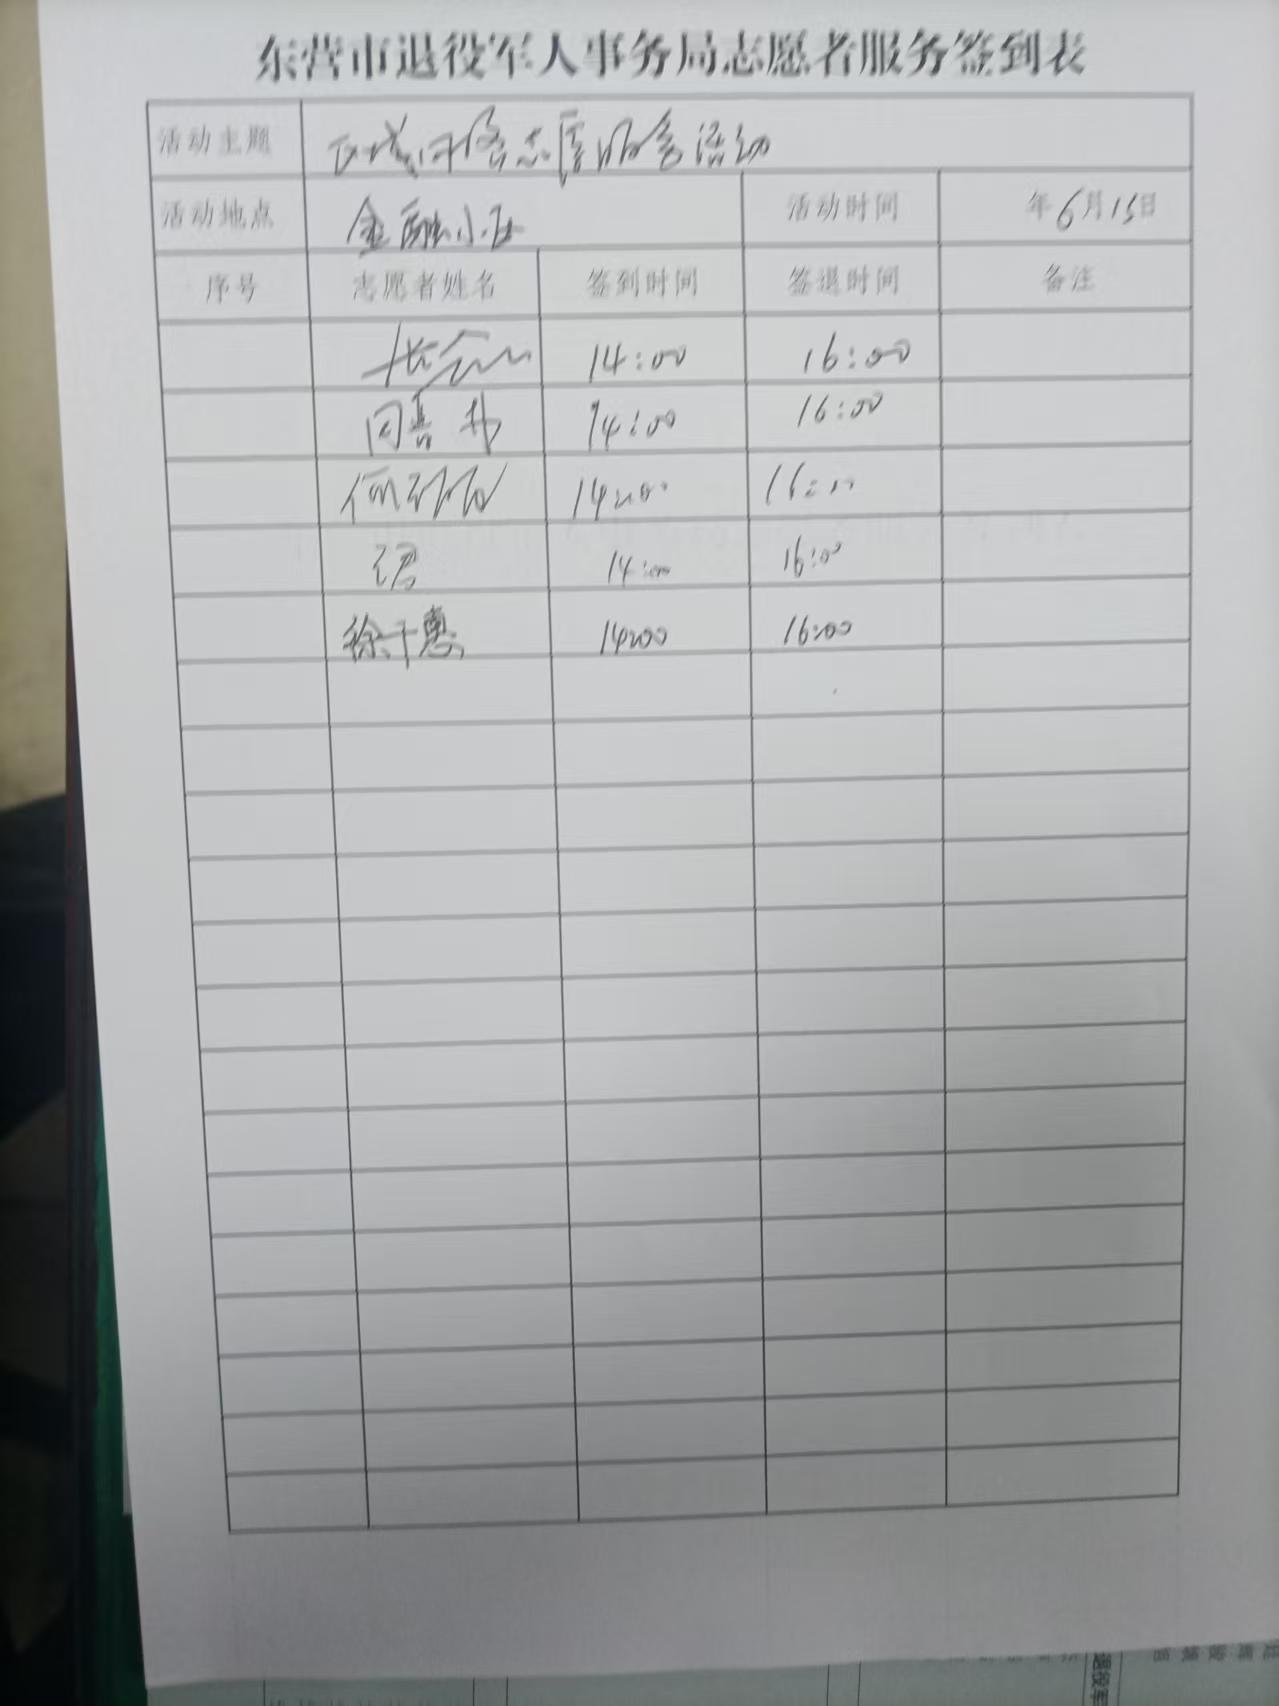 东营市退役军人事务局志愿者服务签到表
活动主题 志愿服务活动
活动地点 金融小区 活动时间 年6月15日
序号 志愿者姓名 签到时间 签退时间 备注
14:00 16:00
14:00 16:00
14:00 16:00
14:00 16:00
徐千惠 14:00 16:00